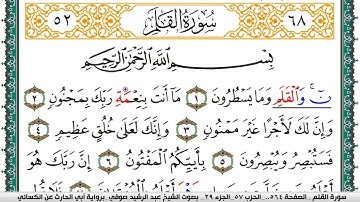 ٥٢ سُورَةُ القَلَمِ ٦٨
بِسْمِ اللَّهِ الرَّحْمَٰنِ الرَّحِيمِ
نٓ ۚ وَالْقَلَمِ وَمَا يَسْطُرُونَ ١ مَا أَنتَ بِنِعْمَةِ رَبِّكَ بِمَجْنُونٍ ٢
وَإِنَّ لَكَ لَأَجْرًا غَيْرَ مَمْنُونٍ ٣ وَإِنَّكَ لَعَلَىٰ خُلُقٍ عَظِيمٍ ٤
فَسَتُبْصِرُ وَيُبْصِرُونَ ٥ بِأَييِّكُمُ الْمَفْتُونُ ٦ إِنَّ رَبَّكَ هُوَ
سورة القلم .. الصفحة ٥٦٤ .. الحزب ٥٧ .. الجزء ٢٩ .. بصوت الشيخ عبد الرشيد صوفي .. برواية أبي الحارث عن الكسائي